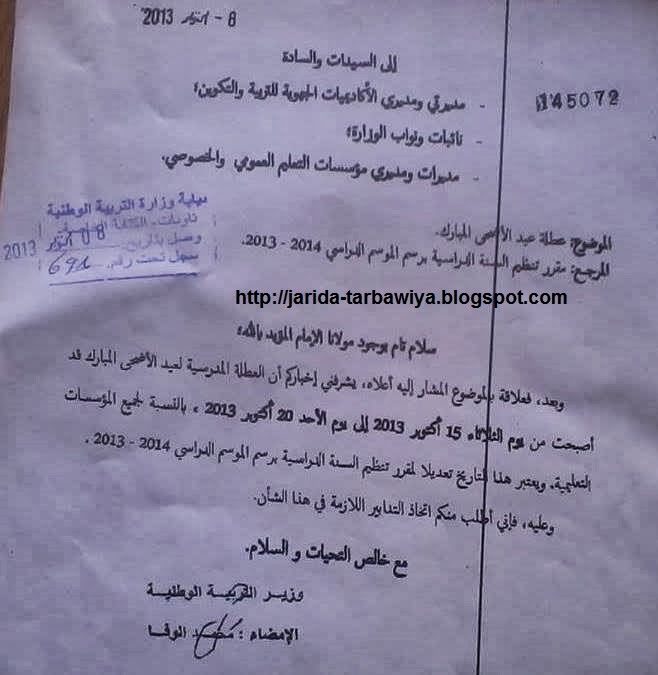 8 - اكتوبر 2013
إلى السيدات والسادة
- مديرتي ومديري الأكاديميات الجهوية للتربية والتكوين؛
145072
- نائبات ونواب الوزارة؛
- مديرات ومديري مؤسسات التعليم العمومي والخصوصي.
نيابة وزارة التربية الوطنية
تاونات - الكتابة
وصل بتاريخ 08 اكتوبر 2013
سجل تحت رقم
الموضوع: عطلة عيد الأضحى المبارك.
المرجع: مقرر تنظيم السنة الدراسية برسم الموسم الدراسي 2014 - 2013.
http://jarida-tarbawiya.blogspot.com
سلام تام بوجود مولانا الإمام المؤيد بالله؛
وبعد، فعلاقة بالموضوع المشار إليه أعلاه، يشرفني إخباركم أن العطلة المدرسية لعيد الأضحى المبارك قد
أصبحت من يوم الثلاثاء 15 أكتوبر 2013 إلى يوم الأحد 20 أكتوبر 2013 ، بالنسبة لجميع المؤسسات
التعليمية. ويعتبر هذا التاريخ تعديلا لمقرر تنظيم السنة الدراسية برسم الموسم الدراسي 2014 - 2013 .
وعليه، فإني أطلب منكم اتخاذ التدابير اللازمة في هذا الشأن.
مع خالص التحيات و السلام.
وزير التربية الوطنية
الإمضاء : محمد الوفا